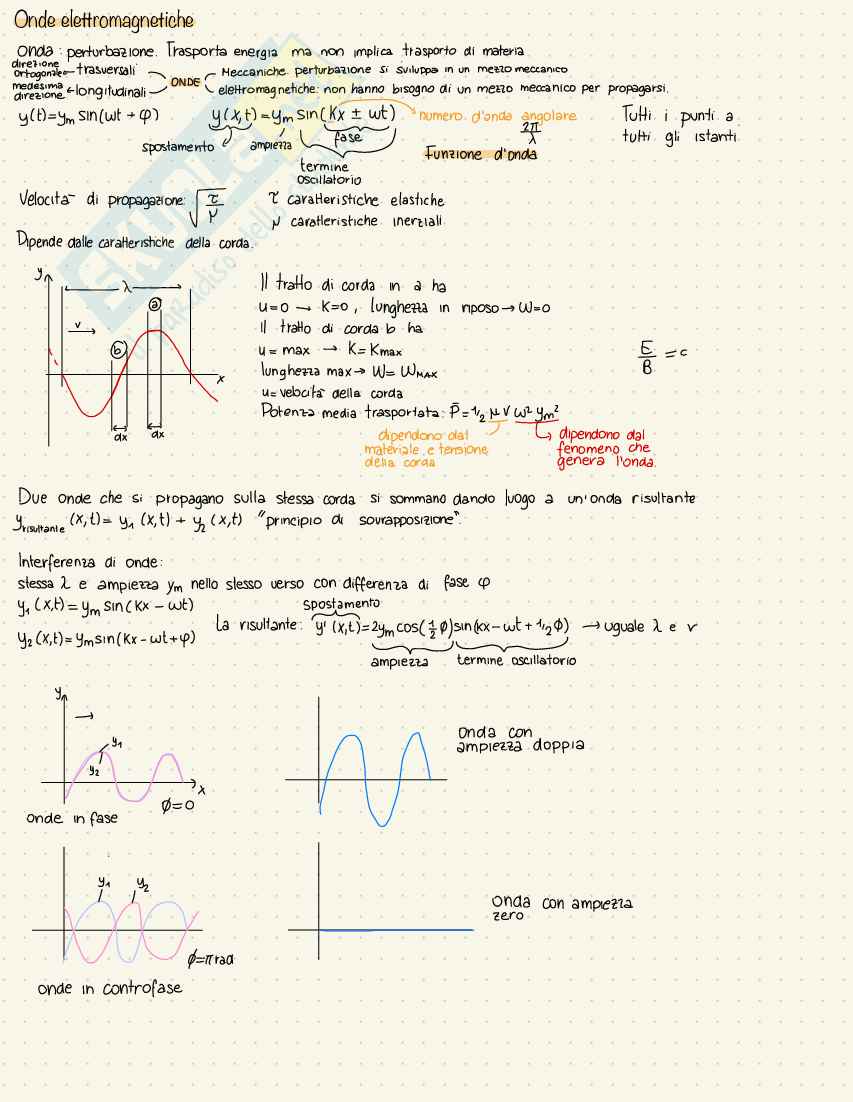 Onde elettromagnetiche
Onda: perturbazione. Trasporta energia ma non implica trasporto di materia.
direzione ortogonale ← trasversali
medesima direzione ← longitudinali
ONDE
Meccaniche: perturbazione si sviluppa in un mezzo meccanico
elettromagnetiche: non hanno bisogno di un mezzo meccanico per propagarsi.
y(t)=ym sin(ωt + φ)
y(x,t)=ym sin(Kx ± ωt)
numero d'onda angolare
2π/λ
Tutti i punti a
tutti gli istanti.
spostamento
ampiezza
fase
termine
oscillatorio
Funzione d'onda
Velocità di propagazione: √(τ/μ)
τ caratteristiche elastiche
μ caratteristiche inerziali
Dipende dalle caratteristiche della corda.
y
λ
a
v
b
x
dx
dx
Il tratto di corda in a ha
u=0 → K=0, lunghezza in riposo → W=0
Il tratto di corda b ha
u= max → K= Kmax
lunghezza max → W= WMAX
u= velocità della corda
E/B = c
Potenza media trasportata: P̄=1/2 μ v ω² ym²
dipendono dal
materiale e tensione
della corda
dipendono dal
fenomeno che
genera l'onda.
Due onde che si propagano sulla stessa corda si sommano dando luogo a un'onda risultante
yrisultante (x,t)= y1 (x,t) + y2 (x,t) "principio di sovrapposizione".
Interferenza di onde:
stessa λ e ampiezza ym nello stesso verso con differenza di fase φ
y1 (x,t)= ym sin(Kx - ωt)
y2 (x,t)= ym sin(Kx - ωt + φ)
spostamento
La risultante: y'(x,t)=2ym cos(1/2 ϕ)sin(kx - ωt + 1/2 ϕ) → uguale λ e v
ampiezza
termine oscillatorio
y
y1
y2
x
ϕ=0
onde in fase
Onda con
ampiezza doppia
y1
y2
ϕ=π rad
onde in controfase
Onda con ampiezza
zero